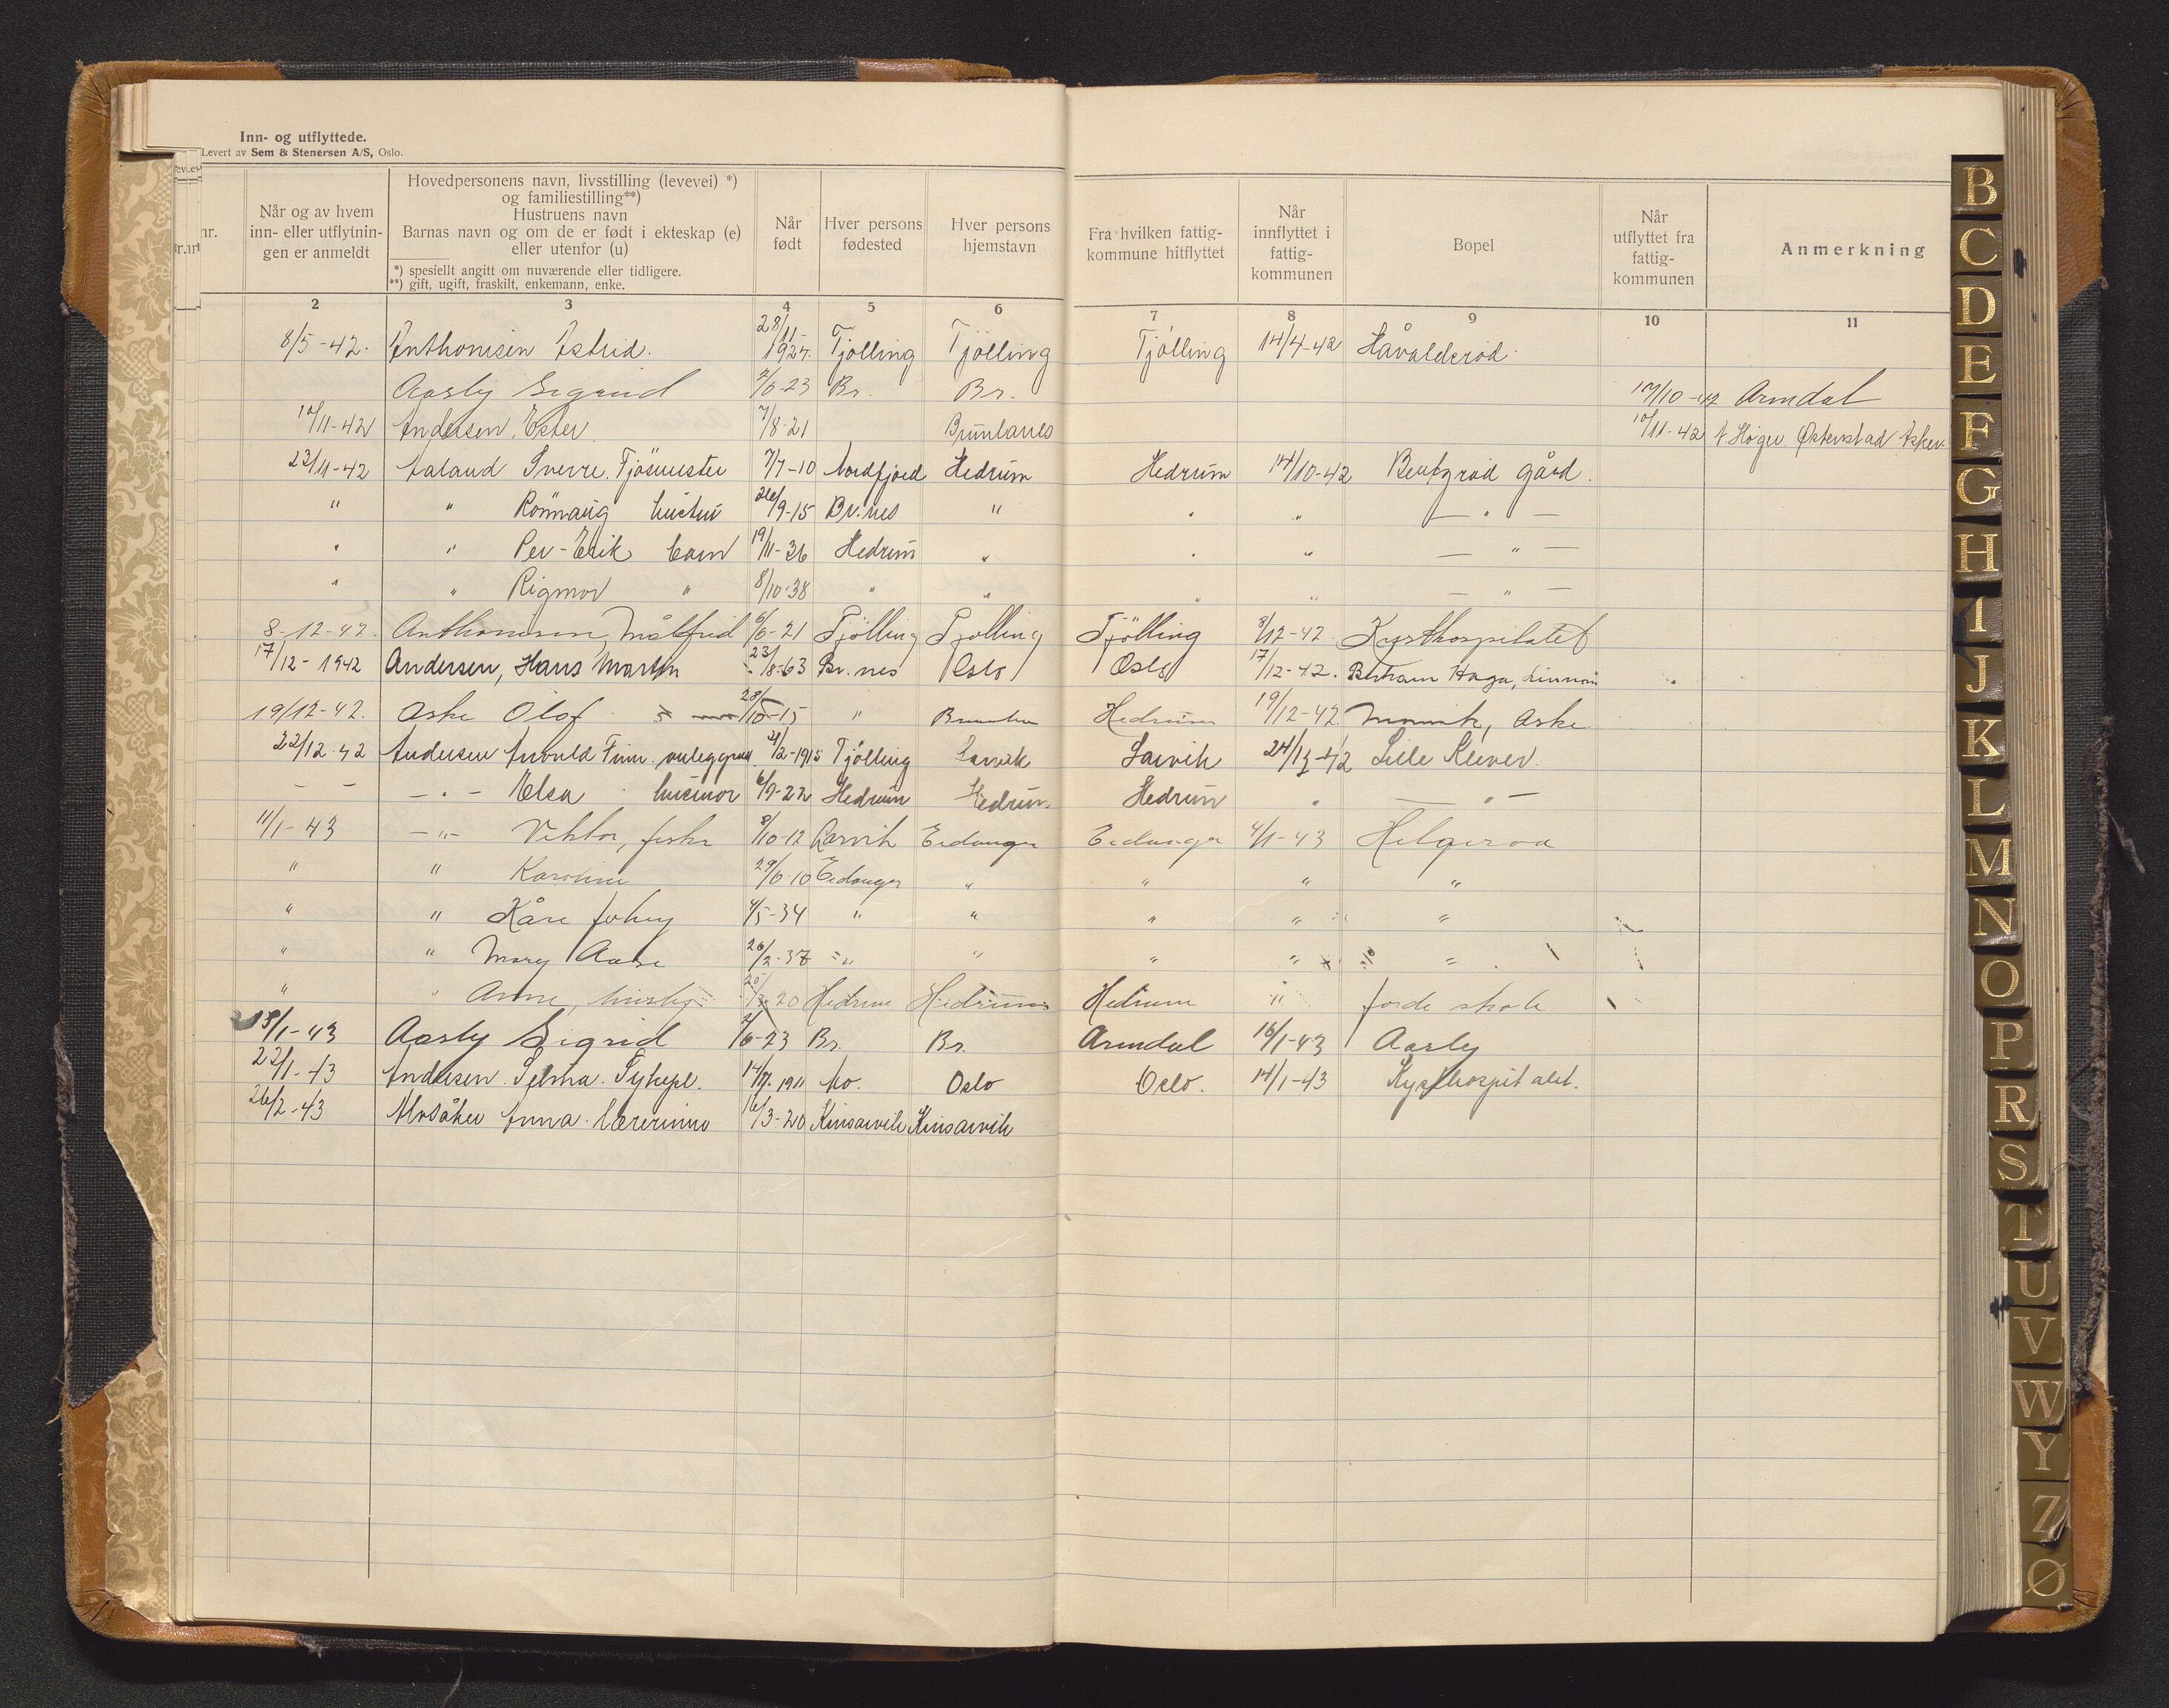 Inn- og utflyttede.
Levert av Sem & Stenersen A/S, Oslo.
Når og av hvem inn- eller utflytningen er anmeldt
Hovedpersonens navn, livsstilling (levevei) *) og familiestilling**)
Hustruens navn
Barnas navn og om de er født i ekteskap (e) eller utenfor (u)
*) spesiellt angitt om nuværende eller tidligere.
**) gift, ugift, fraskilt, enkemann, enke.
Når født
Hver persons fødested
Hver persons hjemstavn
Fra hvilken fattigkommune hitflyttet
Når innflyttet i fattigkommunen
Bopel
Når utflyttet fra fattigkommunen
Anmerkning
2 3 4 5 6 7 8 9 10 11
8/5-42. Anthonisen Astrid. 28/11-1924. Tjølling Tjølling Tjølling 14/4-42 Håvalderød.
Aasly Sigrid 2/6-23 Br. Br. 17/10-42 Arndal
10/11-42 Andersen, Ester 7/8-21 Brunlanes 10/11-42 Østenstad Asker
23/11-42 Aaland Sverre. Fjösmester 7/7-10 Nordfjord Hedrum Hedrum 14/10-42 gård.
" " Rönnaug hustru 26/9-15 Br.nes " " " — " —
" " Per-Erik barn 19/11-36 Hedrum " " " — " —
" " Rigmor " 8/10-38 " " " " — " —
8-12-42. Anthonisen, Målfrid 6/6-21 Tjölling Tjölling Tjölling 8/12-42. Kysthospitalet
17/12-1942 Andersen, Hans Martin 23/8-63 Br.nes Oslo Oslo 17/12-42. Haga,
19/12-42. Aske Olof 28/10-15 " Hedrum 19/12-42. Aske
22/12-42 Andersen Arnold Finn. 2-1915 Tjölling Larvik Larvik 24/12-42 Lille Klever.
— — — " — Elsa husmor 6/9-22 Hedrum Hedrum Hedrum " — " —
11/1-43 — " — Viktor, fisker 8/10-12 Larvik Eidanger Eidanger 4/1-43 Helgeroa
" " Karoline 29/6-10 Eidanger " " " "
" " Kåre Johny 4/5-34 " " " " "
" " Mary Aase 26/2-37 " " " " "
" " Anne, 20 Hedrum Hedrum Hedrum " skole
18/1-43 Aasly Sigrid 2/6-23 Br. Br. Arndal 16/1-43 Aasly
22/1-43 Andersen Selma. Sykepl. 14/7.1911 Mo. Oslo Oslo. 14/1-43 Kysthospitalet.
26/2-43 Alvsåker Anna. Lærerinne 16/3-20 Kinsarvik Kinsarvik
B
C
D
E
F
G
H
I
J
K
L
M
N
O
P
R
S
T
U
V
W
Y
Z
Ø